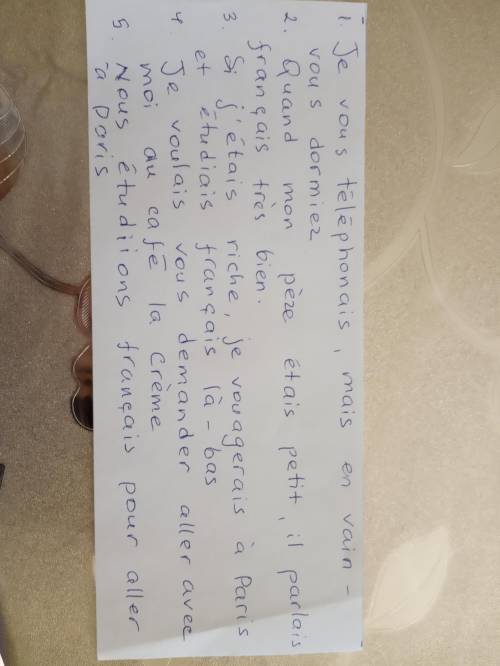 1. Je vous téléphonais, mais en vain -
vous dormiez
2. Quand mon père étais petit, il parlais
français très bien.
3. Si j'étais riche, je vouagerais à Paris
et étudiais français là-bas
4. Je voulais vous demander aller avec
moi au café la crème
5. Nous étudiions français pour aller
à Paris